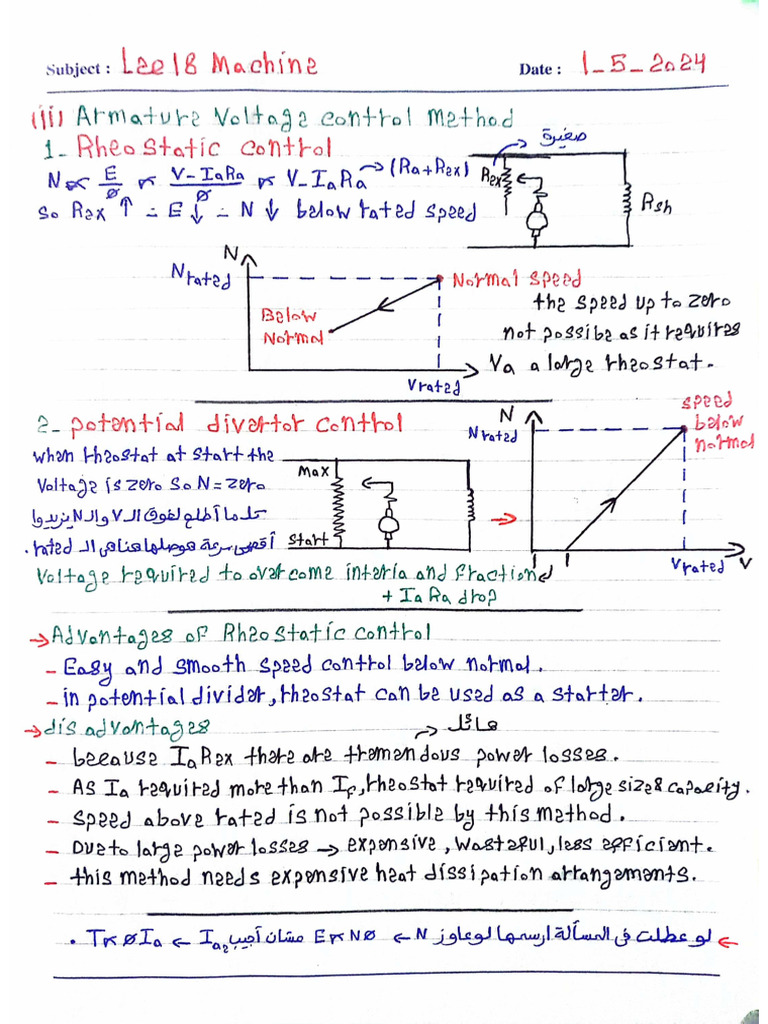 Subject : Lec 18 Machine
Date : 1-5-2024
(ii) Armature Voltage control Method
1- Rheostatic control
صغيرة
N ∝ E/Ø ∝ V-IaRa/Ø ∝ V-IaRa → (Ra+Rex)
Rex
Rsh
so Rex ↑ = E ↓ = N ↓ below rated speed
N
Nrated
Normal speed
Below
Normal
the speed up to zero
not possibe as it requires
a large rheostat.
Va
Vrated
2- potential divertor control
when rheostat at start the
Voltage is zero so N = zero
كل ما أطلع لفوق الـ V والـ N يزيدوا
أقصى سرعة هوصلها هنا هي الـ rated .
Max
Start
N
Nrated
speed
below
normal
Vrated
V
Voltage required to overcome interia and fractiond
+ IaRa drop
→ Advantages of Rheostatic control
- Easy and smooth speed control below normal.
- in potential divider, rheostat can be used as a starter.
→ disadvantages
هائل
- because IaRex there are tremendous power losses.
- As Ia required more than If, rheostat required of large size & capacity.
- speed above rated is not possible by this method.
- Due to large power losses → expensive, wasteful, less efficient.
- this method needs expensive heat dissipation arrangements.
← لو عطلت في المسألة ارسمها لو عاوز N ← E ∝ NØ عشان أجيب Ia2 ← T ∝ ØIa .